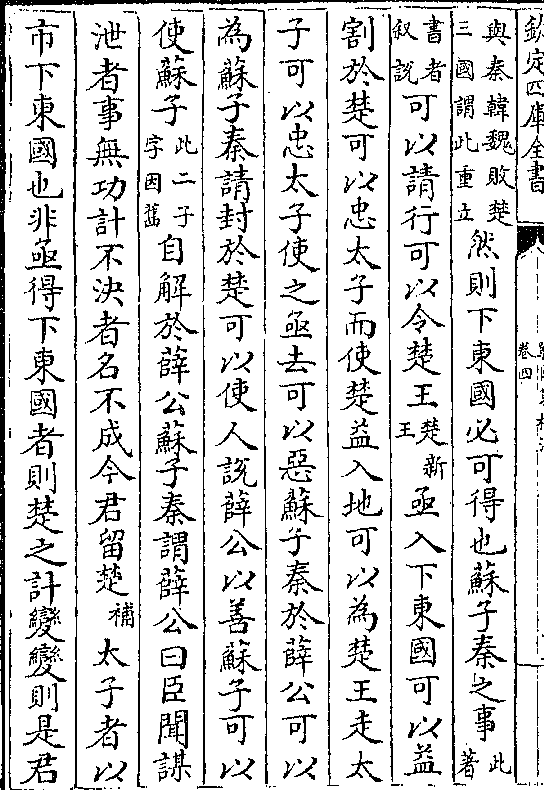 欽定四庫全書
卷四
與秦韓魏敗楚
三國謂此重立
然則下東國必可得也蘇子秦之事
此
著
書者
叙說
可以請行可以令楚王
楚新
王
亟入下東國可以益
割於楚可以忠太子而使楚益入地可以為楚王走太
子可以忠太子使之亟去可以惡蘇子秦於薛公可以
為蘇子秦請封於楚可以使人說薛公以善蘇子可以
使蘇子
此二子
字因舊
自解於薛公蘇子秦謂薛公曰臣聞謀
泄者事無功計不決者名不成今君留楚
補
太子者以
市下東國也非亟得下東國者則楚之計變變則是君